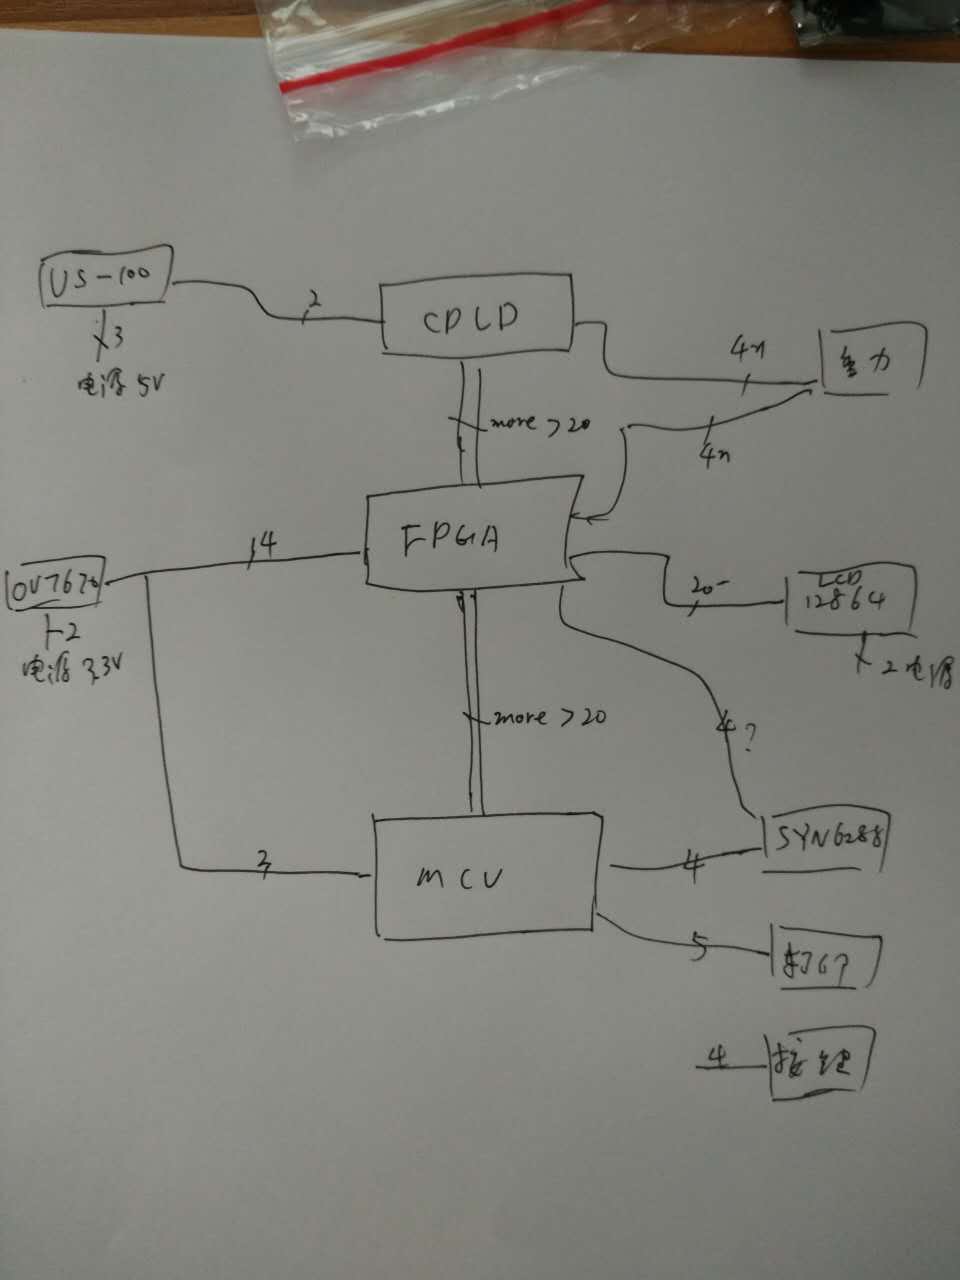 US-100
2
CPLD
3
电源 5V
4n
重力
more > 20
4n
FPGA
4
OV7670
2
电源 3.3V
20
LCD
12864
2 电源
more > 20
4?
SYN6288
MCU
3
4
5
打印
4
按键